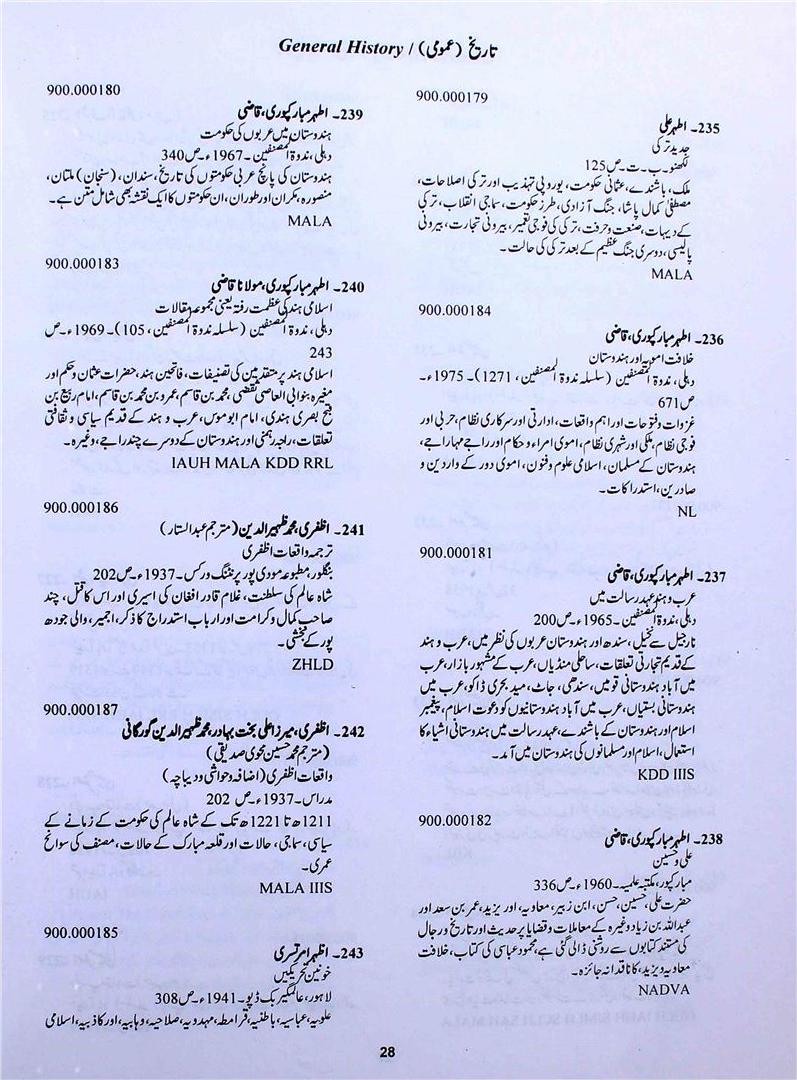 تاریخ (عمومی) / General History
900.000179
235۔ اطہر علی
جدید ترکی
لکھنو۔ ب۔ت۔ ص125
ملک، باشندے، عثمانی حکومت، یوروپی تہذیب اور ترکی اصلاحات،
مصطفیٰ کمال پاشا، جنگ آزادی، طرز حکومت، سماجی انقلاب، ترکی
کے دیہات، صنعت و حرفت، ترکی کی فوجی تعمیر، بیرونی تجارت، بیرونی
پالیسی، دوسری جنگ عظیم کے بعد ترکی کی حالت۔
MALA
900.000184
236۔ اطہر مبارکپوری، قاضی
خلافت امویہ اور ہندوستان
دہلی، ندوۃ المصنفین (سلسلہ ندوۃ المصنفین، 1271)۔ 1975ء۔
ص671
غزوات و فتوحات اور اہم واقعات، ادارتی اور سرکاری نظام، حربی اور
فوجی نظام، ملکی اور شہری نظام، اموی امراء و حکام اور راجے مہاراجے،
ہندوستان کے مسلمان، اسلامی علوم و فنون، اموی دور کے واردین و
صادرین، استدراکات۔
NL
900.000181
237۔ اطہر مبارکپوری، قاضی
عرب و ہند عہد رسالت میں
دہلی، ندوۃ المصنفین۔ 1965ء۔ ص200
نارجیل سے نخیل، سندھ اور ہندوستان عربوں کی نظر میں، عرب و ہند
کے قدیم تجارتی تعلقات، ساحلی منڈیاں، عرب کے مشہور بازار، عرب
میں آباد ہندوستانی قومیں، سندھی، جاٹ، مید بحری ڈاکو، عرب میں
ہندوستانی بستیاں، عرب میں آباد ہندوستانیوں کو دعوت اسلام، پیغمبر
اسلام اور ہندوستان کے باشندے، عہد رسالت میں ہندوستانی اشیاء کا
استعمال، اسلام اور مسلمانوں کی ہندوستان میں آمد۔
KDD IIIS
900.000182
238۔ اطہر مبارکپوری، قاضی
علی و حسین
مبارکپور، مکتبہ علمیہ۔ 1960ء۔ ص336
حضرت علی، حسین، حسن، ابن زبیر، معاویہ، اور یزید، عمر بن سعد اور
عبداللہ بن زیاد وغیرہ کے معاملات و قضایا پر حدیث اور تاریخ و رجال
کی مستند کتابوں سے روشنی ڈالی گئی ہے، محمود عباسی کی کتاب، خلافت
معاویہ و یزید، کا ناقدانہ جائزہ۔
NADVA
900.000180
239۔ اطہر مبارکپوری، قاضی
ہندوستان میں عربوں کی حکومت
دہلی، ندوۃ المصنفین۔ 1967ء۔ ص340
ہندوستان کی پانچ عربی حکومتوں کی تاریخ، سندان، (سنجان) ملتان،
منصورہ، مکران اور طوران، ان حکومتوں کا ایک نقشہ بھی شامل متن ہے۔
MALA
900.000183
240۔ اطہر مبارکپوری، مولانا قاضی
اسلامی ہند کی عظمت رفتہ یعنی مجموعہ مقالات
دہلی، ندوۃ المصنفین (سلسلہ ندوۃ المصنفین، 105)۔ 1969ء۔ ص
243
اسلامی ہند پر متقدمین کی تصنیفات، فاتحین ہند، حضرات عثمان و حکم اور
مغیرہ بنوابی العاصی ثقفی، محمد بن قاسم، عمرو بن محمد بن قاسم، امام ربیع بن
صبیح بصری ہندی، امام ابوموسیٰ، عرب و ہند کے قدیم سیاسی و ثقافتی
تعلقات، راجہ رہمی اور ہندوستان کے دوسرے چند راجے، وغیرہ۔
IAUH MALA KDD RRL
900.000186
241۔ اظفری، محمد ظہیر الدین (مترجم عبدالستار)
ترجمہ واقعات اظفری
بنگلور، مطبوعہ مودی پور پرنٹنگ ورکس۔ 1937ء۔ ص202
شاہ عالم کی سلطنت، غلام قادر افغان کی اسیری اور اس کا قتل، چند
صاحب کمال و کرامت اور ارباب استدراج کا ذکر، اجمیر، والی جودھ
پور کے بخشی۔
ZHLD
900.000187
242۔ اظفری، میرزا علی بخت بہادر، محمد ظہیر الدین گورگانی
(مترجم محمد حسین محوی صدیقی)
واقعات اظفری (اضافہ و حواشی و دیباچہ)
مدراس۔ 1937ء۔ ص 202
1211ھ تا 1221ھ تک کے شاہ عالم کی حکومت کے زمانے کے
سیاسی، سماجی، حالات اور قلعہ مبارک کے حالات، مصنف کی سوانح
عمری۔
MALA IIIS
900.000185
243۔ اظہر امرتسری
خونین تحریکیں
لاہور، عالمگیر بک ڈپو۔ 1941ء۔ ص308
علویہ، عباسیہ، باطنیہ، قرامطہ، مہدویہ، صلاحیہ، وہابیہ، اور کاذبیہ، اسلامی
28